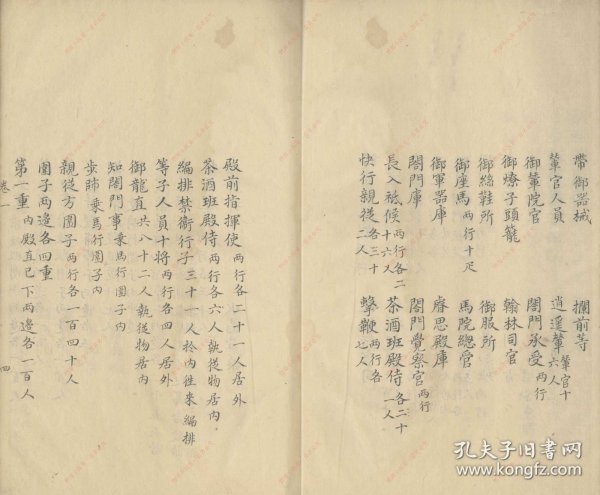 帶御器械　攔前等
輦官人員　逍遙輦輦官十六人
御輦院官　閤門承受兩行
御燎子頭籠　翰林司官
御絲鞋所　御服所
御座馬兩行十疋　馬院總管
御軍器庫　睿思殿庫
閤門庫　閤門覺察官兩行
長入祗候兩行各二十六又　茶酒班殿侍各二十一人
快行親從各三十二人　擊鞭兩行各七人
殿前指揮使兩行各二十一人居外
茶酒班殿侍兩行各六人執從物居內
編排禁衛行子三十一人於內往來編排
等子人員十將兩行各四人居外
御龍直共八十二人執從物居內
知閤門事乘馬行圍子內
步帥乘馬行圍子內
親從方圍子兩行各一百四十人
圍子兩邊各四重
第一重內殿直已下兩邊各一百人
卷一　四
孔夫子旧书网
www.kongfz.com